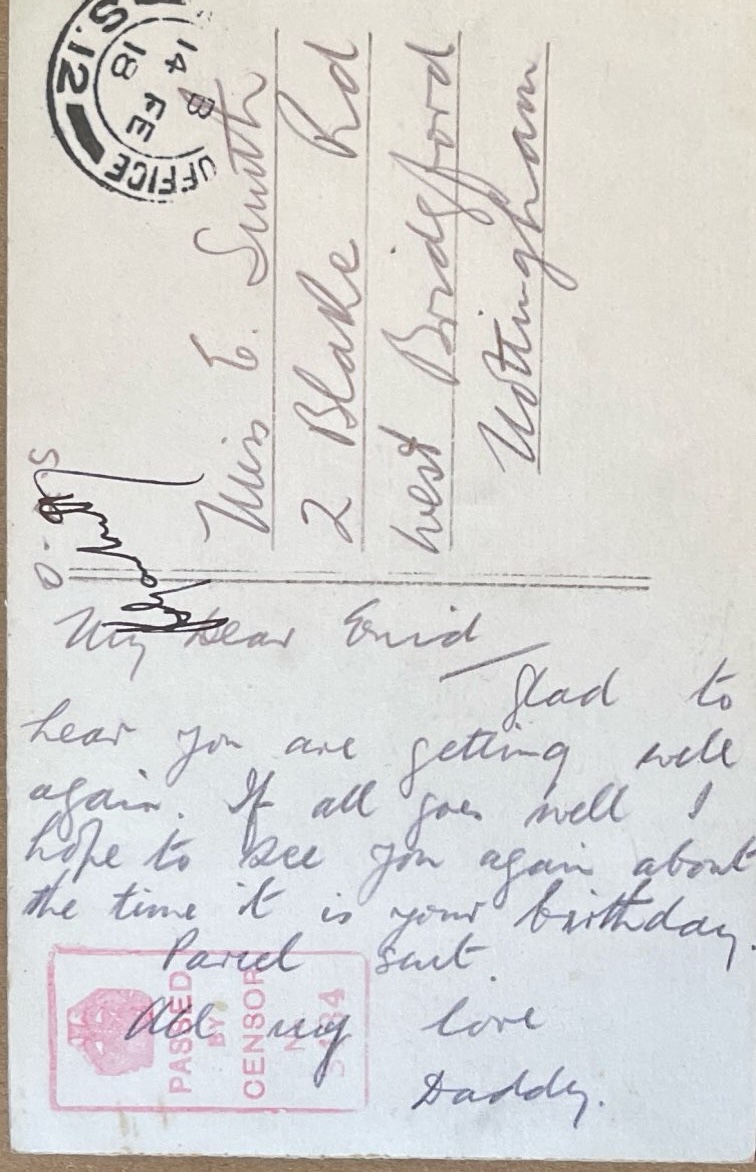 OFFICE
S.12
B
14 FE
18
Miss E. Smith
2 Blake Rd
West Bridgford
Nottingham
My Dear Enid
Glad to
hear you are getting well
again. If all goes well I
hope to see you again about
the time it is your birthday.
Parcel sent.
All my love
Daddy.
PASSED
BY
CENSOR